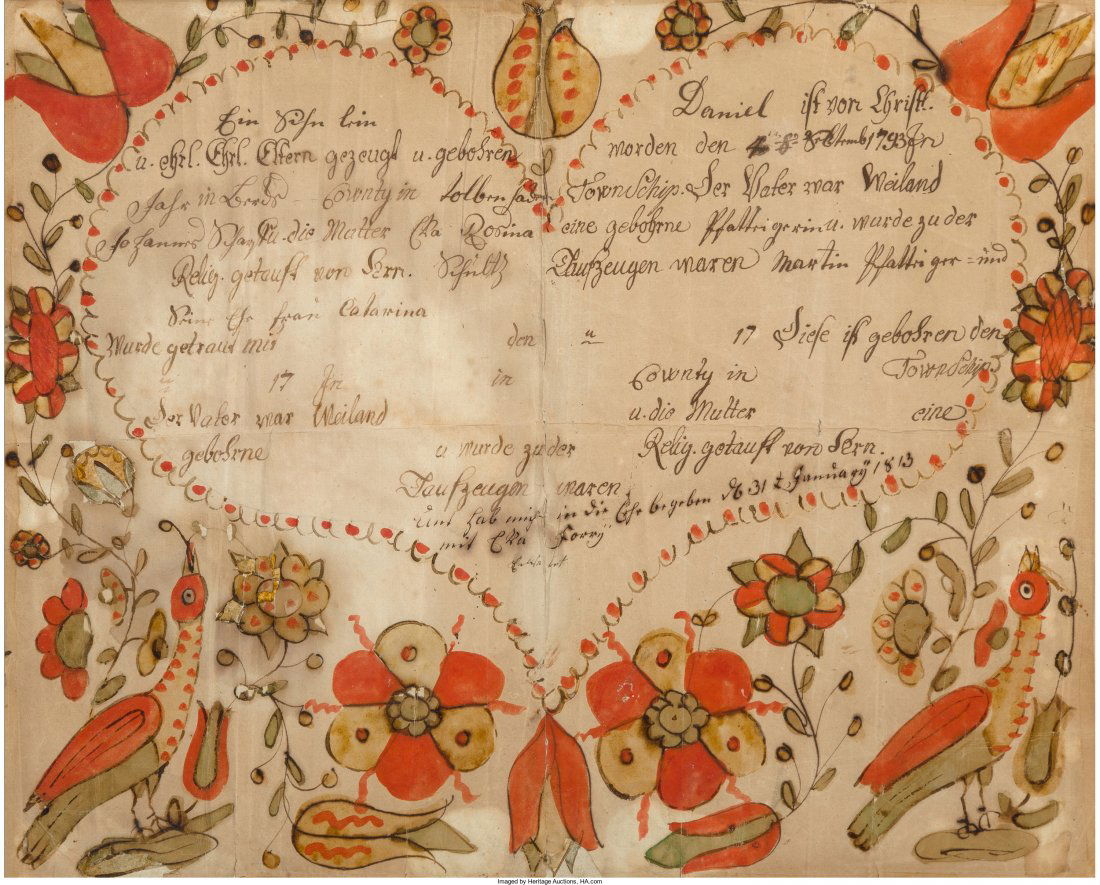 Ein Sohn lein Daniel ist von Christl.
u. ehrl. Ehrl. Eltern gezeugt u. gebohren worden den Septemb 1793 Jn
Jahr in Berds County in TownSchip. Der Vater war Weiland
Johannes u. die Mutter Eva Rosina eine gebohrne Pfattrigerin u. wurde zu der
Relig. getauft von Hrn. Schultz Taufzeugen waren Martin Pfattriger = und
Seine Ehe frau Catarina
Wurde getraut mit den 17 Diese ist gebohren den
17 Jn in County in TownSchip
Der Vater war Weiland u. die Mutter eine
gebohrne u wurde zu der Relig. getauft von Hrn.
Taufzeugen waren
Und hab mich in die Ehe begeben d 31 t January 1813
mit Eva Forry
Imaged by Heritage Auctions, HA.com